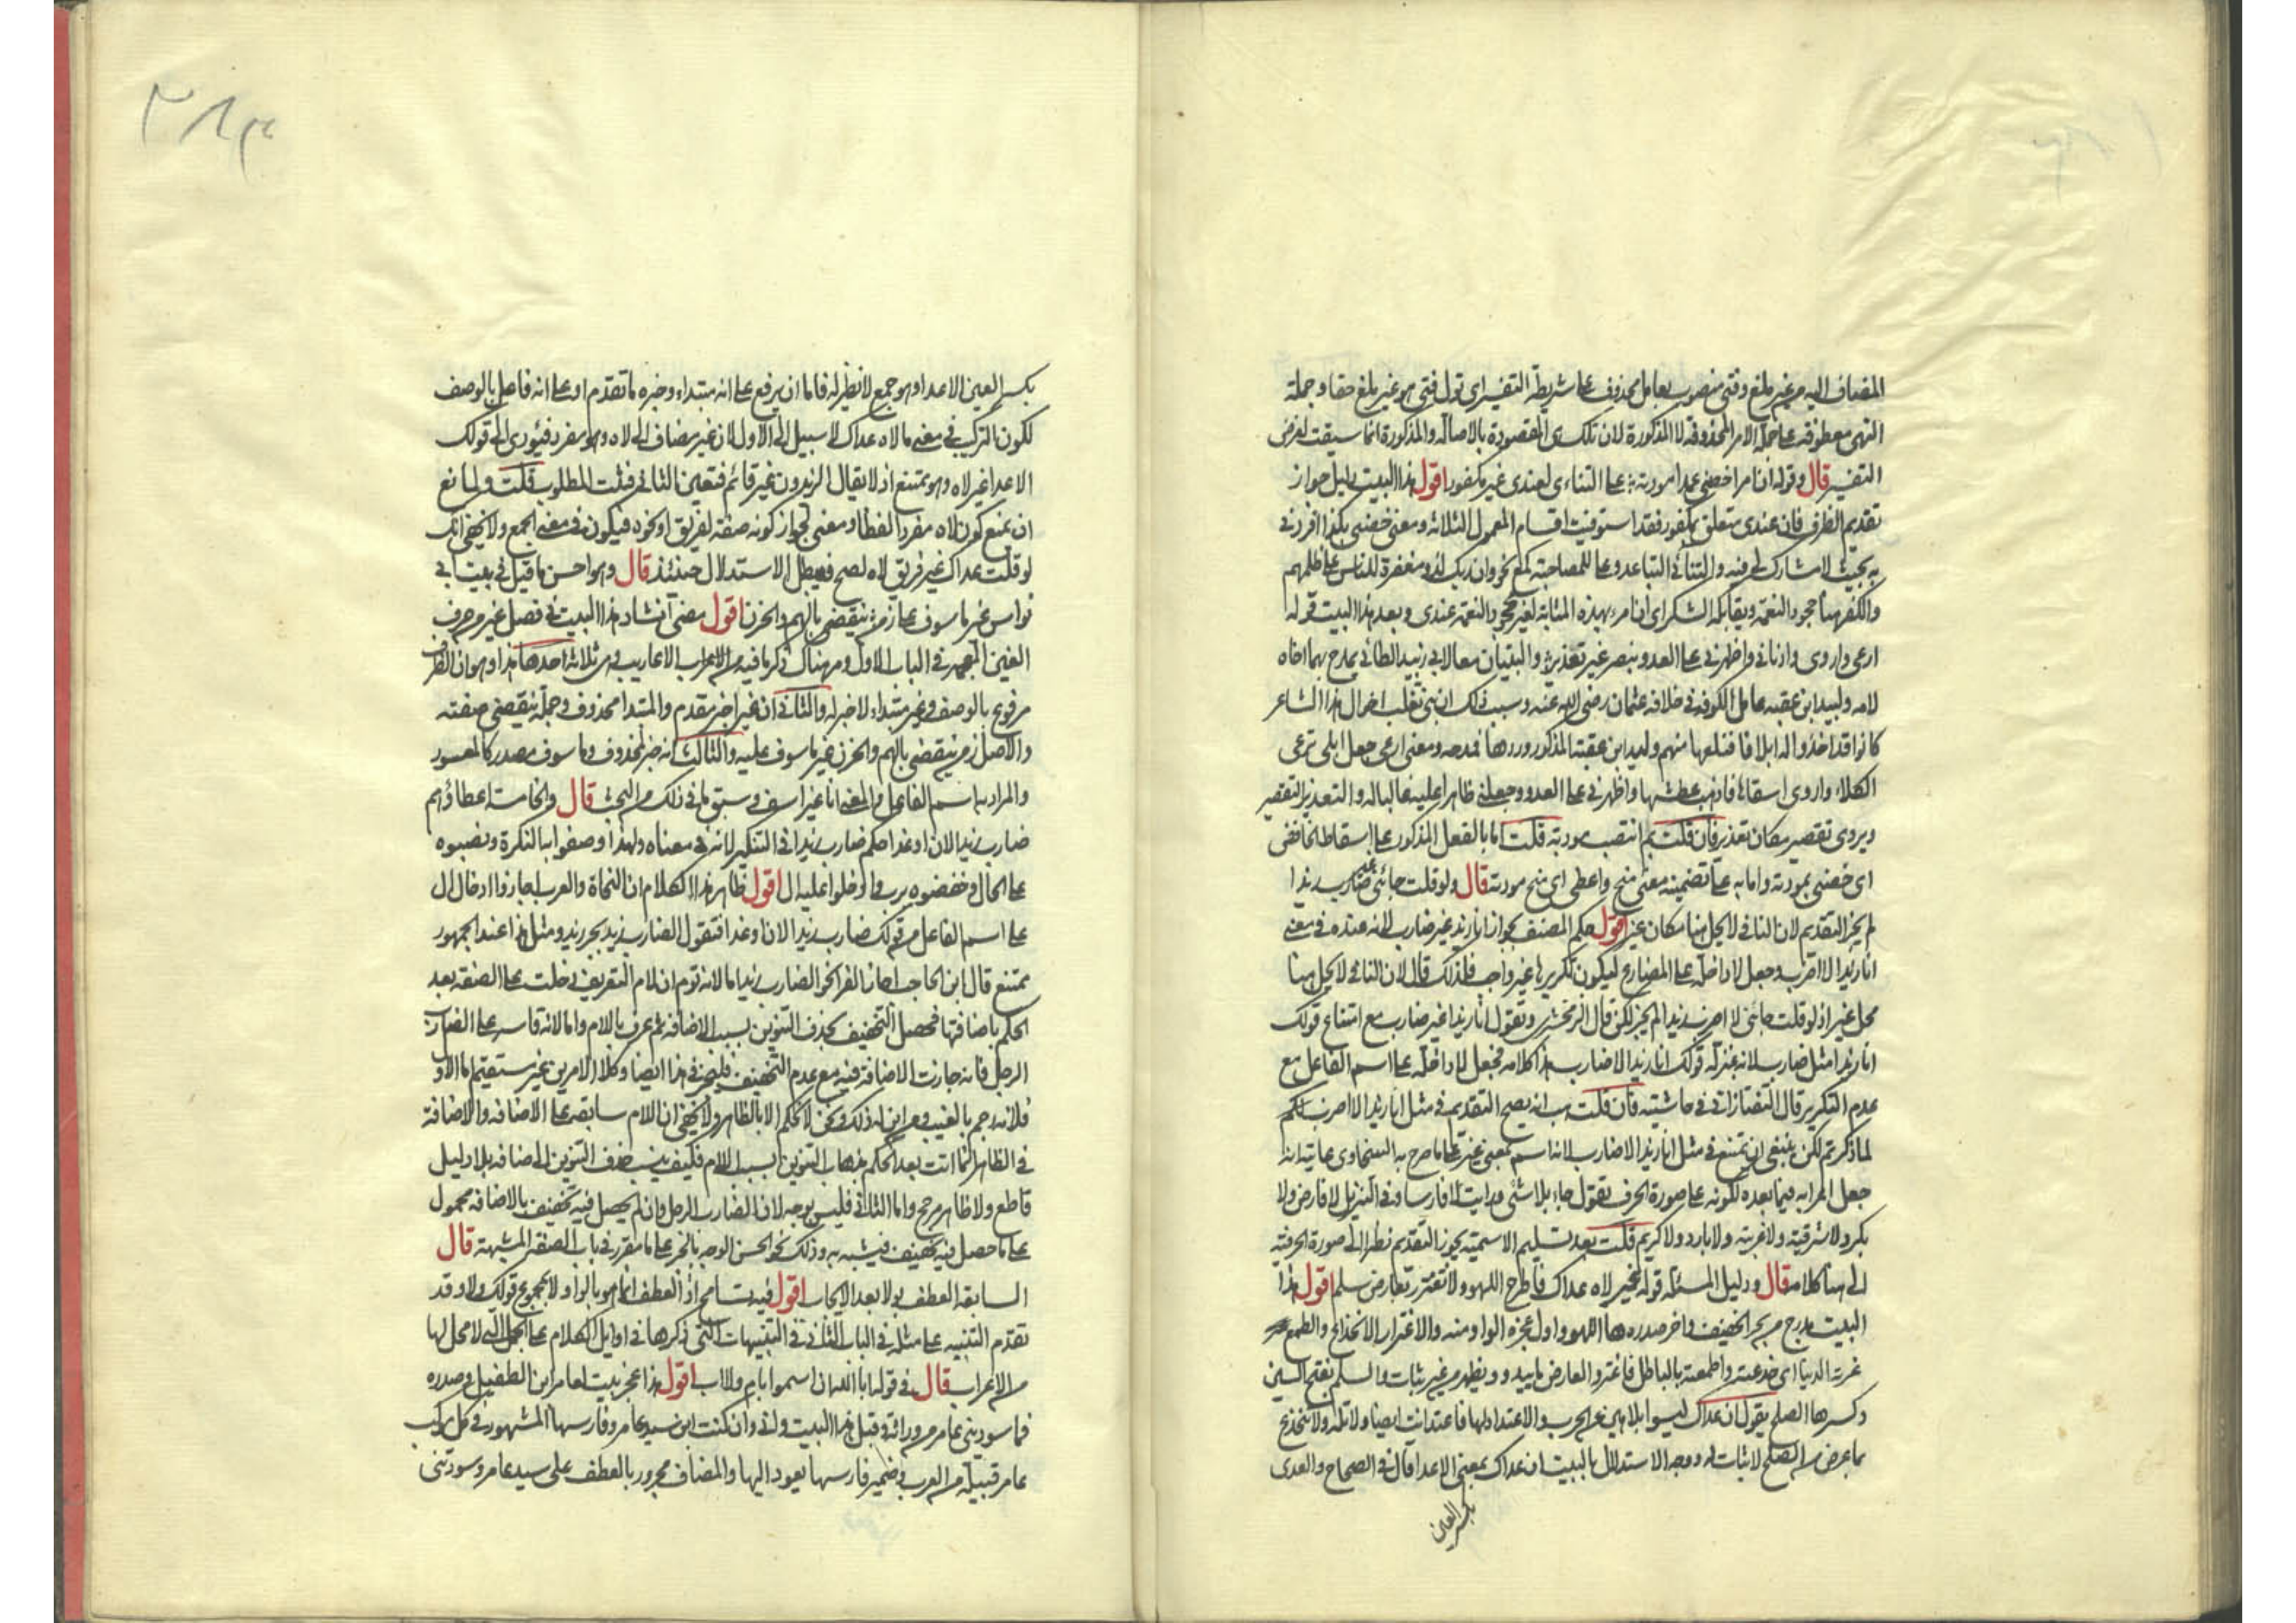 المضاف اليه من غير ملغ وفتى منصوب بعامل محذوف على شريطة التفسير اى تول فتى هو غير ملغ حقا وجملة
النهى معطوفة على جملة الامر المحذوفة لا المذكورة لان تلك هى المقصودة بالاصالة والمذكورة انما سيقت لغرض
التفسير قال وقوله ان امرا خصنى عمدا مودته على التنائى لعندى غير مكفور اقول هذا البيت دليل جواز
تقديم الظرف فان عندى متعلق بمكفور فقد استوفيت اقسام المعمول الثلاثة ومعنى خصنى بكذا افردنى
به بحيث لا مشارك لى فيه والتنائى التباعد وعلى للمصاحبة كمع نحو وان ربك لذو مغفرة للناس على ظلمهم
والكفر هنا جحود النعمة ويقابله الشكر اى ان امرا بهذه المثابة لغير مجحود النعمة عندى وبعد هذا البيت قوله
ارعى واروى وادنانى واظهرنى على العدو بنصر غير تعذير والبيتان معا لابى زبيد الطائى يمدح بهما اخاه
لامه وليد ابن عقبه عامل الكوفة فى خلافة عثمان رضى الله عنه وسبب ذلك ان بنى تغلب اخوال هذا الشاعر
كانوا قد اخذوا له ابلا فانتزعها منهم وليد ابن عقبة المذكور وردها فمدحه ومعنى ارعى جعل ابلى ترعى
الكلاء واروى اسقاها فاذهب عطشها واظهرنى على العدو جعلنى ظاهرا عليه غالبا له والتعذير التقصير
ويروى تقصير مكان تعذير فان قلت بم انتصب مودته قلت اما بالفعل المذكور على اسقاط الخافض
اى خصنى بمودته واما به على تضمينه معنى منح واعطى اى منح مودته قال ولو قلت جائنى غير ضارب زيدا
لم يجز التقديم لان النافى لا يحل هنا مكان غير اقول حكم المصنف بجواز انا زيدا غير ضارب لانه عنده فى معنى
انا زيدا لا اضرب وجعل لا داخلة على المضارع ليكون تكريرها غير واجب فلذلك قال لان النافى لا يحل هنا
محل غير اذ لو قلت جائنى لا اضرب زيدا لم يجز لكن قال الزمخشرى وتقول انا زيدا غير ضارب مع امتناع قولك
انا زيدا مثل ضارب لانه بمنزلة قولك انا زيدا لا ضارب هذا كلامه فجعل لا داخلة على اسم الفاعل مع
عدم التكرير قال التفتازانى فى حاشيته فان قلت هب انه يصح التقديم فى مثل انا زيدا لا اضرب لكم
لما ذكرتم لكن ينبغى ان يمتنع فى مثل انا زيدا لا ضارب لانه اسم بمعنى غير على ما صرح به السخاوى غايته انه
جعل اعرابه فيما بعده لكونه على صورة الحرف تقول جاء بلا شئ ورايت لا فارسا وفى التنزيل لا فارض ولا
بكر ولا شرقية ولا غربية ولا بارد ولا كريم قلت بعد تسليم الاسمية يجوز التقديم نظرا الى صورة الحرفية
الى هنا كلامه قال ودليل المسئلة قوله غير لاه عداك فاطرح اللهو ولا تغترر بعارض سلم اقول هذا
البيت مدرج من بحر الخفيف واخر صدره ها اللهو واول عجزه الواو منه والاغترار الانخداع والطمع
غرته الدنيا اى خدعته واطمعته بالباطل فاغتر والعارض ما يبدو ويظهر من غير ثبات والسلم بفتح السين
وكسرها الصلح يقول ان عداك ليسوا بلاهين عن الحرب والاعتداد لها فاعتد انت ايضا ولا تله ولا تنخدع
بما عرض من الصلح لا ثبات له ووجه الاستدلال بالبيت ان عداك بمعنى الاعدا قال فى الصحاح والعدى
بكسر العين
بكسر العين الاعدا وهو جمع لا نظير له فاما ان يرفع على انه مبتداء وخبره ما تقدم او على انه فاعل بالوصف
لكون التركيب فى معنى ما لاه عداك لا سبيل الى الاول لان غير مضاف الى لاه وهو مفرد فيؤدى الى قولك
الاعدا غير لاه وهو ممتنع اذ لا يقال الزيدون غير قائم فتعين الثانى فثبت المطلوب قلت ولمانع
ان يمنع كون لاه مفردا لفظا ومعنى لجواز كونه صفة لفريق او نحوه فيكون فى معنى الجمع ولا يخفى انك
لو قلت عداك غير فريق لاه لصح فيبطل الاستدلال حينئذ قال وهو احسن ما قيل فى بيت ابى
نواس غير ماسوف على زمن ينقضى بالهم والحزن اقول مضى انشاد هذا البيت فى فصل غير من حرف
الغين المعجمه فى الباب الاول ومر هناك ذكر ما فيه من الاعراب الاعاريب وهى ثلاثة احدها هذا وهو ان الظرف
مرفوع بالوصف وغير مبتداء لا خبر له والثانى ان غير اخبر مقدم والمبتدا محذوف وجملة ينقضى صفته
والاصل زمن ينقضى بالهم والحزن غير ماسوف عليه والثالث انه خبر لمحذوف وماسوف مصدر كالمعسور
والمراد به اسم الفاعل والمعنى انا غير اسف وسبق ما فى ذلك من البحث قال والخامسة اعطاؤهم
ضارب زيدا الان او غدا حكم ضارب زيدا فى التنكير لانه فى معناه ولهذا وصفوا به النكرة ونصبوه
على الحال وخفضوه برب وادخلوا عليه ال اقول ظاهر هذا الكلام ان النحاة والعرب اجازوا ادخال ال
على اسم الفاعل من قولك ضارب زيدا الان او غدا فتقول الضارب زيد بجر زيد ومثل هذا عند الجمهور
ممتنع قال ابن الحاجب اجاز الفرا نحو الضارب زيد اما لانه توهم ان لام التعريف دخلت على الصفة بعد
الحكم باضافتها فحصل التخفيف بحذف التنوين بسبب الاضافه ثم عرف باللام واما لانه قاسه على الضارب
الرجل فانه جازت الاضافة فيه مع عدم التخفيف فليجز فى هذا ايضا وكلا الامرين غير مستقيم اما الاول
فلانه رجم بالغيب ومن اين له ذلك ونحن لا نحكم الا بالظاهر ولا يخفى ان اللام سابقه على الاضافه والاضافة
فى الظاهر انما اتت بعد الحكم بذهاب التنوين بسبب اللام فكيف ينسب حذف التنوين الى اضافه بلا دليل
قاطع ولا ظاهر مرجح واما الثانى فليس بوجه لان الضارب الرجل وان لم يحصل فيه تخفيف بالاضافه محمول
على ما حصل فيه تخفيف فيشبه به وذلك نحو الحسن الوجه بالجر على ما مقرر فى باب الصفة المشبهة قال
السابعة العطف بولا بعد الايجاب اقول فيه تسامح اذ العطف انما هو بالواو لا بمجموع قولك ولا وقد
تقدم التنبيه على مثله فى الباب الثانى فى التنبيهات التى ذكرها فى اوايل الكلام على الجمل التى لا محل لها
من الاعراب قال فى قوله ابا الله ان اسموا بام ولا اب اقول هذا عجز بيت لعامر ابن الطفيل وصدره
فما سودتنى عامر من وراثة وقبل هذا البيت وانى وان كنت ابن سيد عامر وفارسها المشهور فى كل موكب
عامر قبيلة من العرب وضمير فارسها يعود اليها والمضاف مجرور بالعطف على سيد عامر وسودتنى